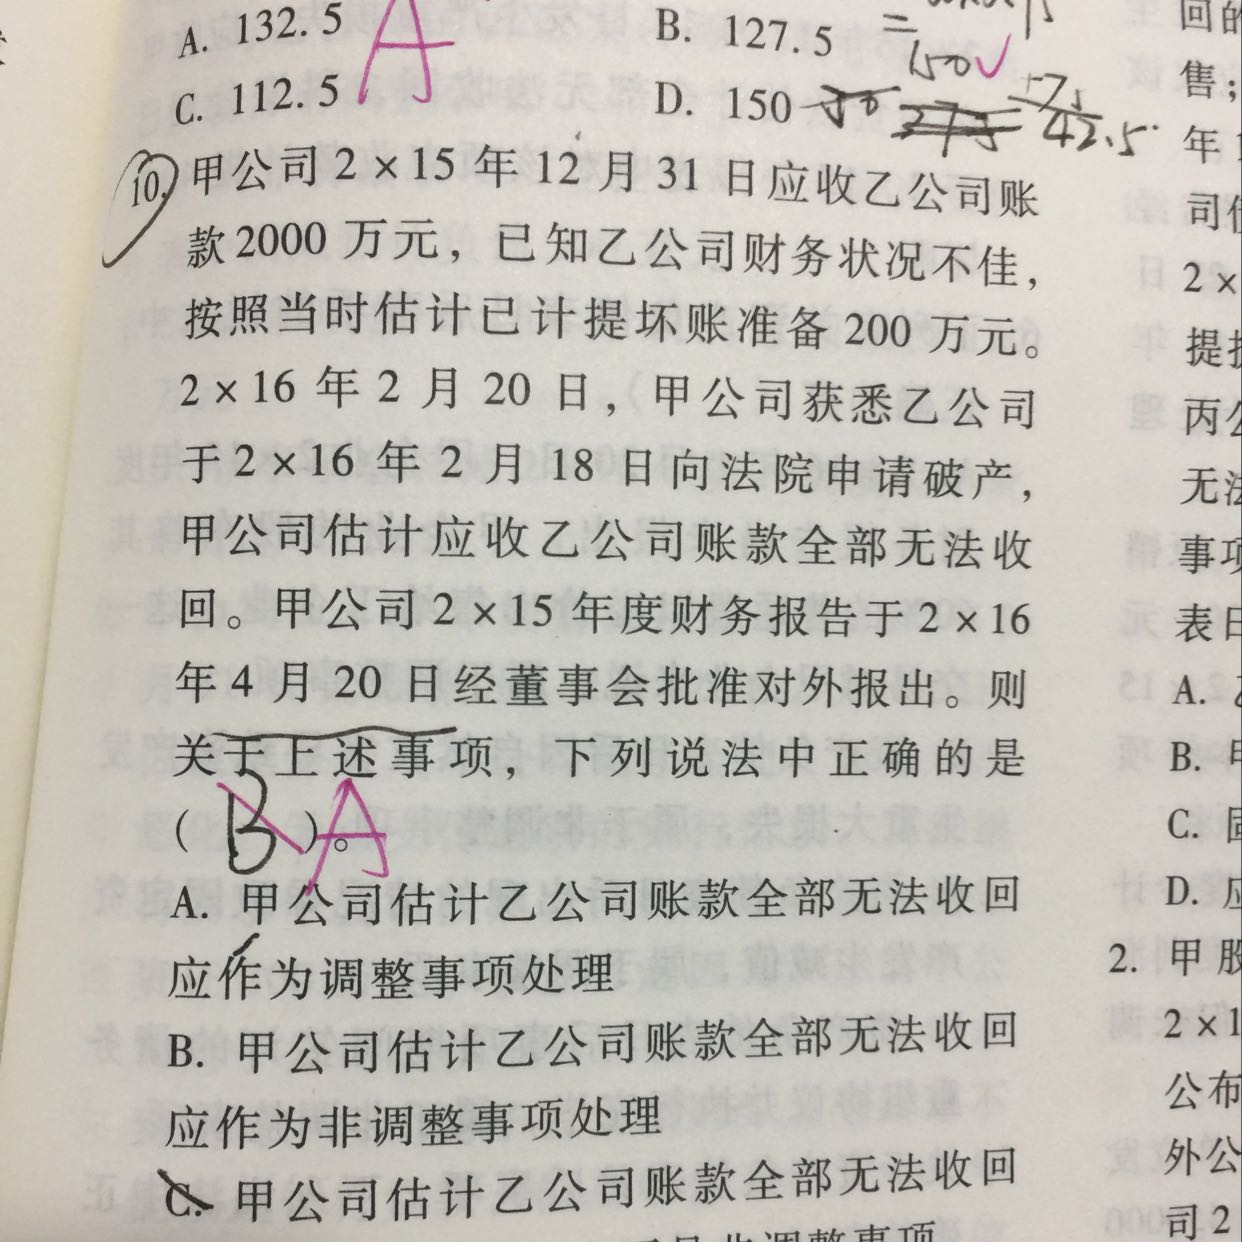 A. 132.5
A
B. 127.5
=
150√
C. 112.5
D. 150
42.5
10. 甲公司 2 × 15 年 12 月 31 日应收乙公司账
款 2000 万元，已知乙公司财务状况不佳，
按照当时估计已计提坏账准备 200 万元。
2 × 16 年 2 月 20 日，甲公司获悉乙公司
于 2 × 16 年 2 月 18 日向法院申请破产，
甲公司估计应收乙公司账款全部无法收
回。甲公司 2 × 15 年度财务报告于 2 × 16
年 4 月 20 日经董事会批准对外报出。则
关于上述事项，下列说法中正确的是
（ B ）。A
A. 甲公司估计乙公司账款全部无法收回
应作为调整事项处理
B. 甲公司估计乙公司账款全部无法收回
应作为非调整事项处理
C. 甲公司估计乙公司账款全部无法收回
非调整事项
回的
售；
年
司
2 ×
提
丙公
无法
事项
表日
A.
B. 甲
C. 固
D. 应
2. 甲股
2 × 1
公布
外公
司 2